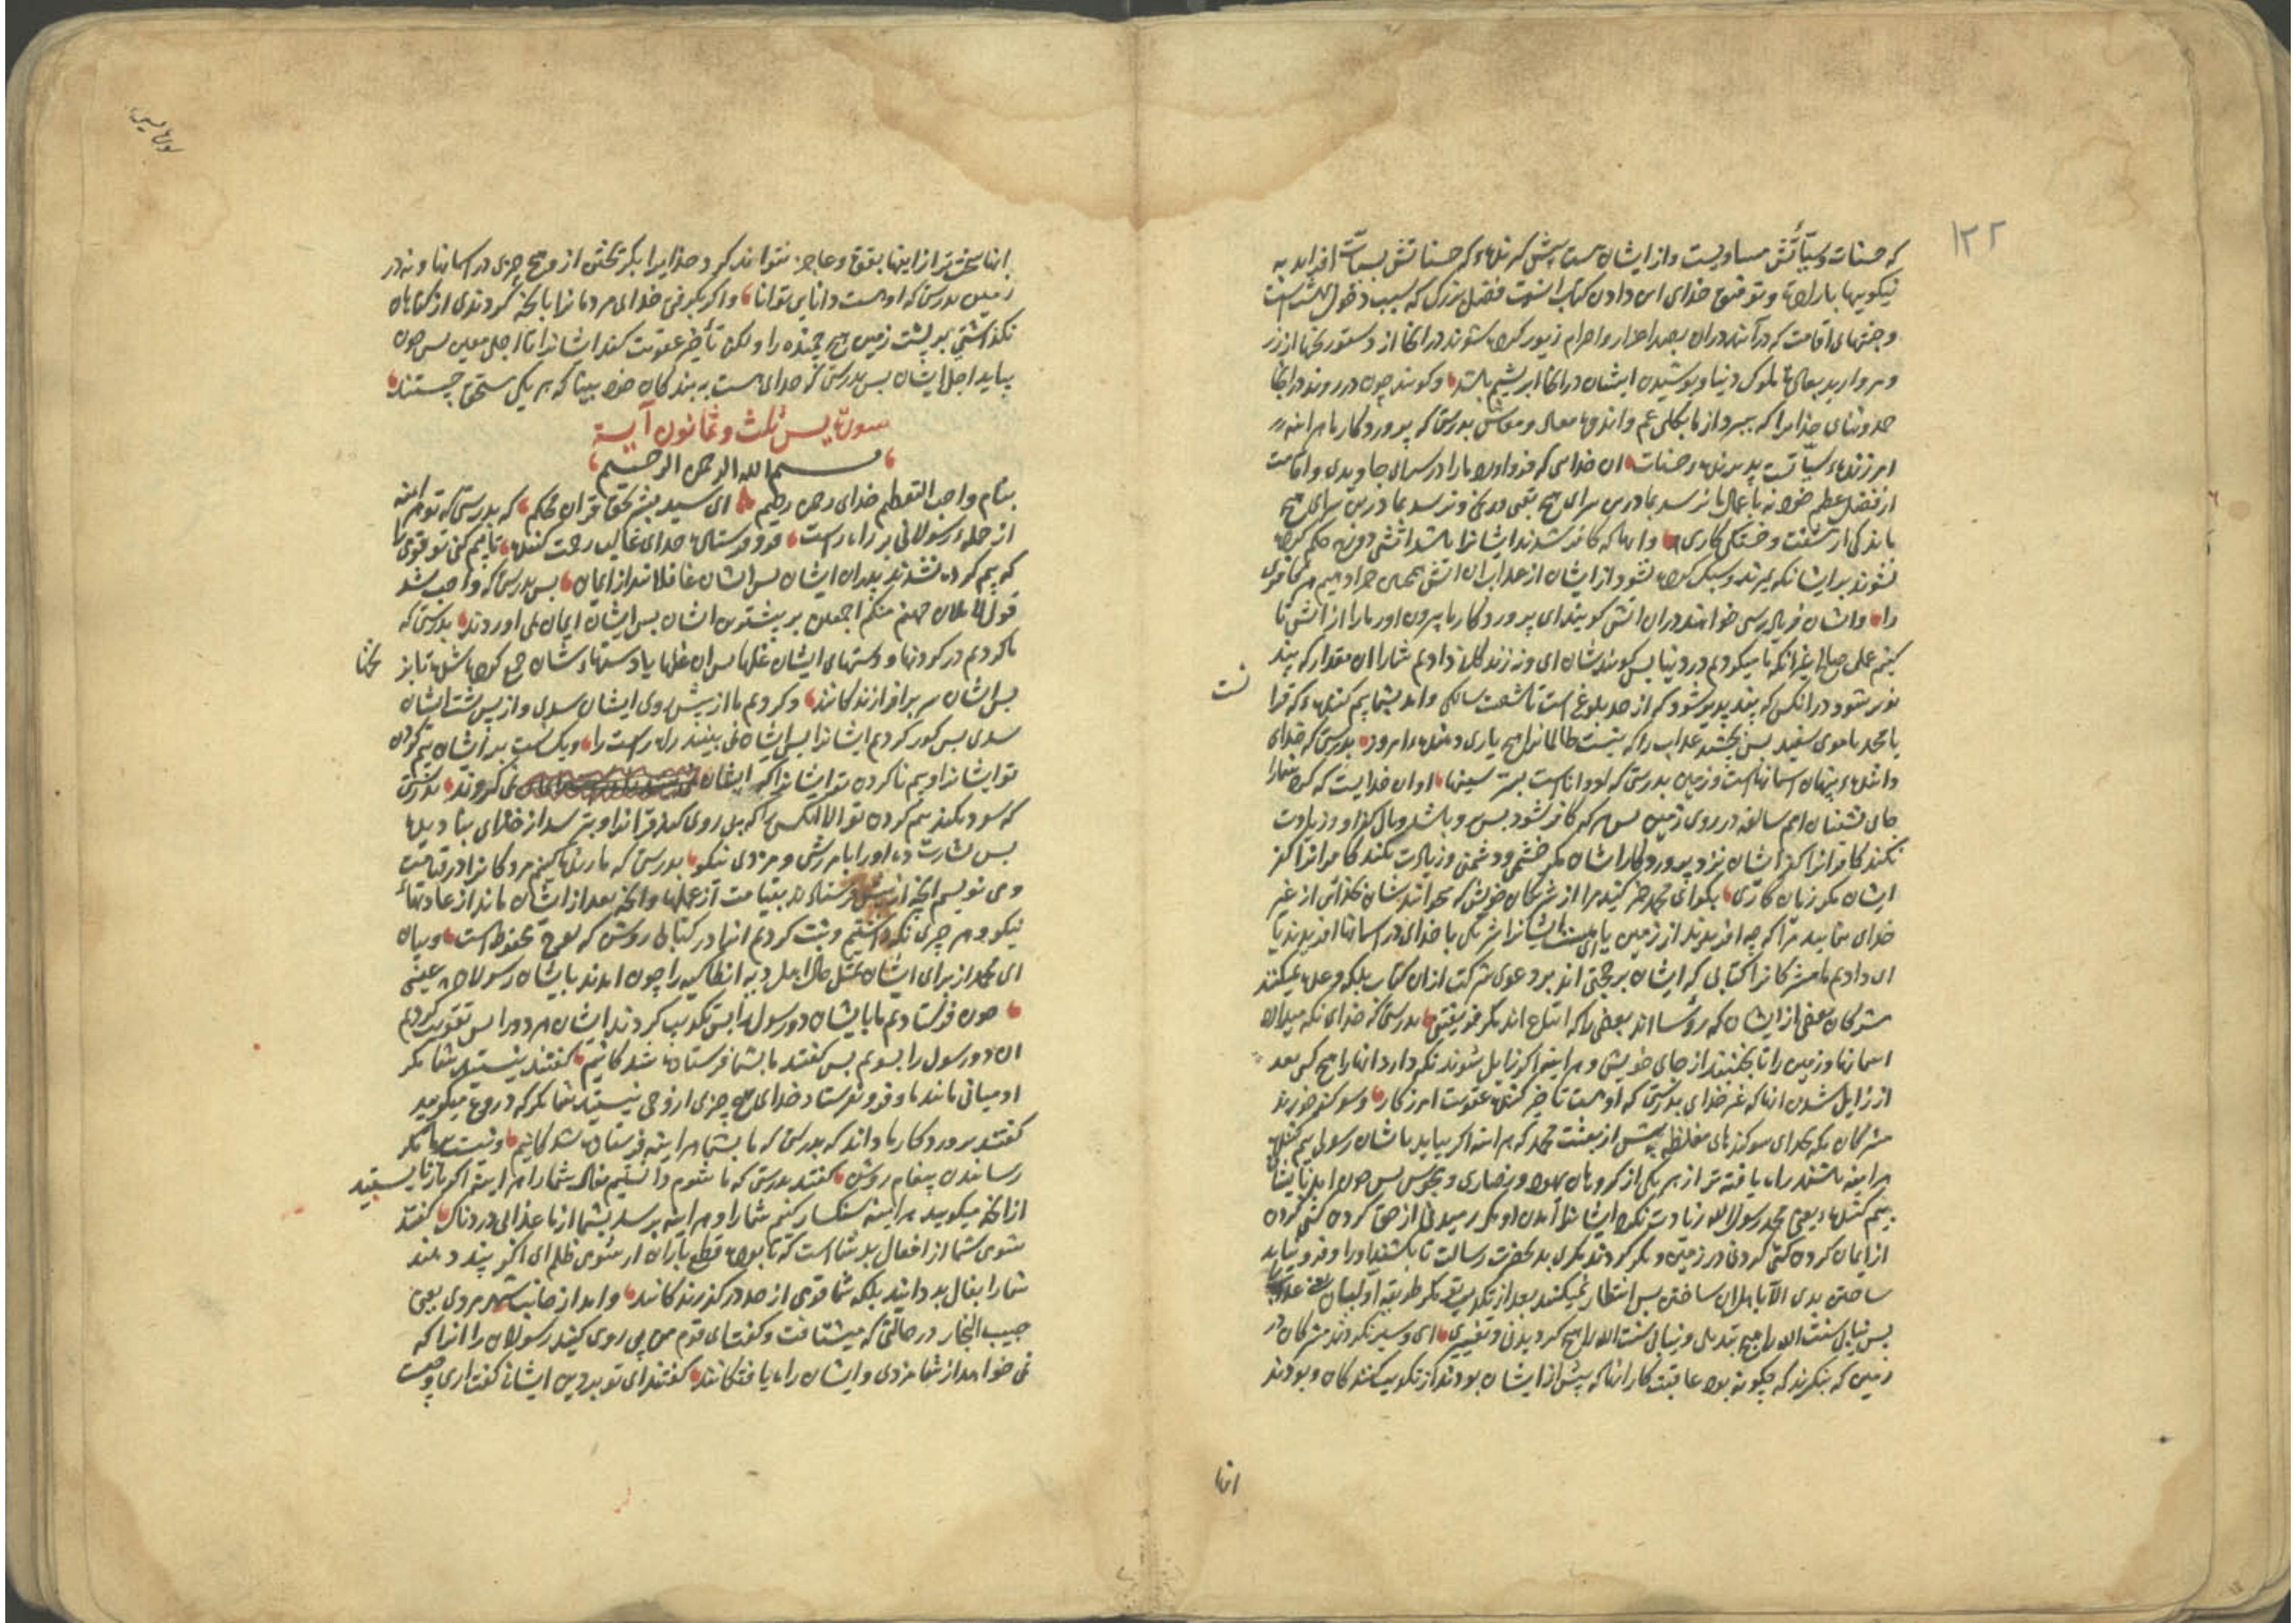 ۱۲۲
که حسنات و سیئاتش مساویست و از ایشان هست پیش گیرنده که حسناتش بسیئات افزاید به
نیکویها باراده و توفیق خدای این دادن کتاب آنست فضل بزرگ که سبب دخول بهشت است
و جنتهای اقامت که درآیند دران زیور کرده شوند در انجا از دستورنجها از زر
و مروارید ملوک دنیا و پوشیدن ایشان در انجا ابریشم باشد و کویند چون در روند در انجا
حمد و ثنای خدایرا که ببرد از ما بکلی غم و اندوه معاد و معاش بدرستی که پروردکار ما هر اینه
امرزنده سیئات پذیرنده حسنات ان خدایی که فرود اورد ما را در سرای جاویدی و اقامت
از فضل عظیم خود نه باعمال ما نرسد بما درین سرای هیچ تعبی و رنج و نرسد بما درین سرای هیچ
ماندگی از مشقت و خستگی کاری و انها که کافر شدند ایشانرا باشد اتش دوزخ حکم کرده
نشوند بر ایشان که بمیرند و سبک کرده نشود از ایشان از عذاب ان اتش همچنین جزا دهیم هر کافری
را و ایشان فریاد رسی خواهند دران اتش کویند ای پروردکار ما بیرون اور ما را از اتش تا
کنیم عمل صالح غیر انکه ما میکردیم در دنیا پس کویندشان ای و نه زندکانی دادیم شما را ان مقدار که پند
پذیر شود دران کس که پند پذیر شود که از حد بلوغ است تا شصت سالکی و امد بشما بیم کننده که قران
یا محمد یا موی سفید پس بچشید عذاب را که نیست ظالمانرا هیچ یاری دهنده امروز بدرستی که خدای
داننده پنهان اسمانهاست و زمین بدرستی که او داناست بسر سینها او ان خدایست که کرد شما را
جای نشینان امم سالفه در روی زمین پس هر که کافر شود پس بر وی باشد وبال کفر او و زیادت
نکند کافرانرا کفر ایشان نزد پروردکار ایشان مکر خشم و دشمنی و زیادت نکند کافرانرا کفر
ایشان مکر زیان کاری بکو ای محمد خبر کنید مرا از شریکان خویش که میخوانیدشان بخدائی از غیر
خدای بنمایید مرا که چه افریدند از زمین یا ای هست ایشانرا شریکی با خدای در اسمانها افریدند یا
ای دادیم ما مشرکانرا کتابی که ایشان بر حجتی اند بر دعوی شرکت ازان کتاب بلکه وعده نمیکنند
مشرکان بعضی از ایشان که رؤسا اند بعضی را که اتباع اند مکر فریفتنی بدرستی که خدای نکه میدارد
اسمانها و زمین را تا نجنبند از جای خویش و هر اینه اکر زایل شوند نکه دارد انها را هیچ کس بعد
از زایل شدن انها که غیر خدای بدرستی که او هست تاخیر کننده عقوبت امرزکار و سوکند خورند
مشرکان مکه بخدای سوکندهای مغلظه پیش از بعثت محمد که هر اینه اکر بیاید باایشان رسولی بیم کننده
هر اینه باشند راه یافته تر از هر یکی از کروهان یهود و نصاری و مجوس پس چون امد باایشان
بیم کننده یعنی محمد رسول الله زیادت نکرد ایشانرا آمدن او مکر رمیدنی را از حق کردن کشی کرده
از ایمان کردن کشی کردنی در زمین و مکر کردند مکری بد بحضرت رسالت تا بکشند او را و فرو نیاید
ساختن بدی الا باهل ان ساختن پس انتظار نمیکشند بعد از تکذیب تو مکر طریقه اولیان یعنی عذاب
پس نیابی سنت الله را هیچ تبدیلی و نیابی سنت الله را هیچ کردیدنی و تغییری ای و سیر نکردند مشرکان در
زمین که بنکرند که چکونه بود عاقبت کار انها که پیش از ایشان بودند از تکذیب کنندکان و بودند
انها
سوره یس
انها سخت تر از اینها بقوت و عاجز نتواند کرد خدایرا بکریختن از وی هیچ چیزی در اسمانها و نه در
زمین بدرستی که او هست دانای توانا و اکر بکرفتی خدای مردمانرا بانچه کردندی از کناهان
نکذاشتی بر پشت زمین هیچ جنبنده را ولکن تأخیر عقوبت کند ایشانرا تا اجلی معین پس چون
بیاید اجل ایشان پس بدرستی که خدای هست به بندکان خود بینا که هر یکی مستحق چیستند
سورة یس ثلث و ثمانون آیة
بسم الله الرحمن الرحیم
بنام واجب التعظیم خدای رحمن رحیم ای سید بشر بحق قران محکم که بدرستی که تو هر اینه
از جمله رسولانی بر راه راست فرو فرستاده خدای غالب رحمت کننده تا بیم کنی تو قومی را
که بیم کرده نشدند پدران ایشان پس ایشان غافلانند از ایمان پس بدرستی که واجب شد
قول لاملان جهنم منکم اجمعین بر بیشترین ایشان پس ایشان ایمان می اوردند بدرستی که
ما کردیم در کردنها و دستهای ایشان غلها پس ان غلها یا دستهاءشان جمع کرده شده تا بز
نخدا
پس ایشان سر برافرازندکانند و کردیم ما از پیش روی ایشان سدی و از پس پشت ایشان
سدی پس کور کردیم ایشانرا پس ایشان نمی بینند راه راست را و یکسانست بر ایشان بیم کردن
تو ایشانرا و بیم ناکردن تو ایشانرا که ایشان نمی کروند بدرستی
که سود نکند بیم کردن تو الا انکس را که پی روی کند قرانرا و بترسد از خدای بنادیده
پس بشارت ده او را بامرزش و مزدی نیکو بدرستی که ما زنده کنیم مردکانرا در قیامت
و می نویسیم انچه از پیش فرستاده اند بقیامت از عملها و انچه بعد از ایشان ماند از عادتهاء
نیکو و هر چیزی نکه داشتیم و ثبت کردیم انرا در کتابی روشن که لوح محفوظ است و بیان کن
ای محمد از برای ایشان مثل حال اهل دیه انطاکیه را چون امدند باایشان رسولان عیسی
چون فرستادیم ما باایشان دو رسول را پس تکذیب کردند ایشان هر دو را پس تقویت کردیم
ان دو رسول را بسوم پس کفتند ما بشما فرستاده شدکانیم کفتند نیستید شما مکر
ادمیانی مانند ما و فرو نفرستاد خدای هیچ چیزی از وحی نیستید شما مکر که دروغ میکویید
کفتند پروردکار ما داند که بدرستی که ما بشما هر اینه فرستاده شدکانیم و نیست بر ما مکر
رسانیدن پیغام روشن کفتند بدرستی که ما شوم دانستیم بفال شما را هر اینه اکر باز نایستید
از انچه میکویید هر اینه سنکسار کنیم شما را و هر اینه برسد بشما از ما عذابی دردناک کفتند
شومی شما از افعال بد شما است که با بود قطع باران از شومی ظلم ای اکر پند دهند
شما را بفال بد دانید بلکه شما قومی از حد درکذرندکانید و امد از جانب شهر مردی یعنی
حبیب النجار در حالتی که میشتافت و کفت ای قوم من پی روی کنید رسولان را انرا که
نمی خواهد از شما مزدی و ایشان راه یافتکانند کفتند ای تو بر دین ایشانی کفت اری و چیست